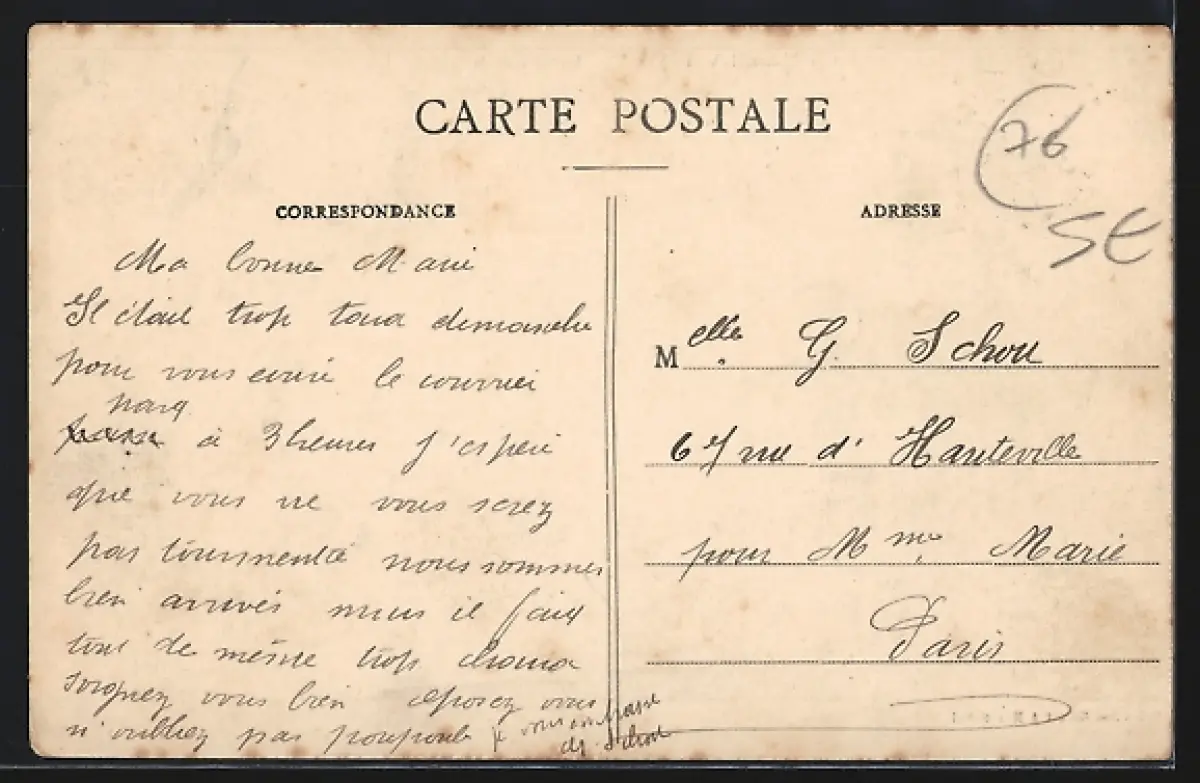 CARTE POSTALE
CORRESPONDANCE
ADRESSE
76
SE
Ma bonne Marie
Il était trop tard dimanche
pour vous ecrire le courrier
à 3 heures j'espère
que vous ne vous serez
pas tourmenté nous sommes
bien arrivés mais il faix
tout de même trop chaud
soignez vous bien reposez vous
n'oubliez pas
je vous embrasse
G. Schou
Melle G. Schou
67 rue d'Hauteville
pour Mme Marie
Paris